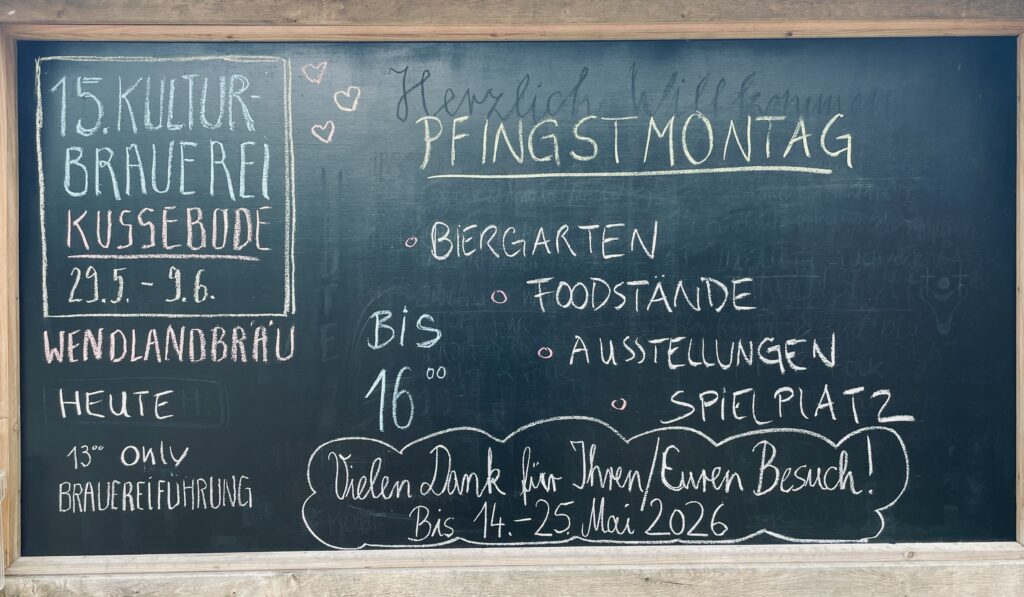 15. KULTUR-
BRAUEREI
KUSSEBODE
29.5. - 9.6.
WENDLANDBRÄU
HEUTE
13°° only
BRAUEREIFÜHRUNG
Herzlich Willkommen
PFINGSTMONTAG
BIERGARTEN
FOODSTÄNDE
AUSSTELLUNGEN
SPIELPLATZ
BIS
16°°
Vielen Dank für Ihren/Euren Besuch!
Bis 14.-25. Mai 2026